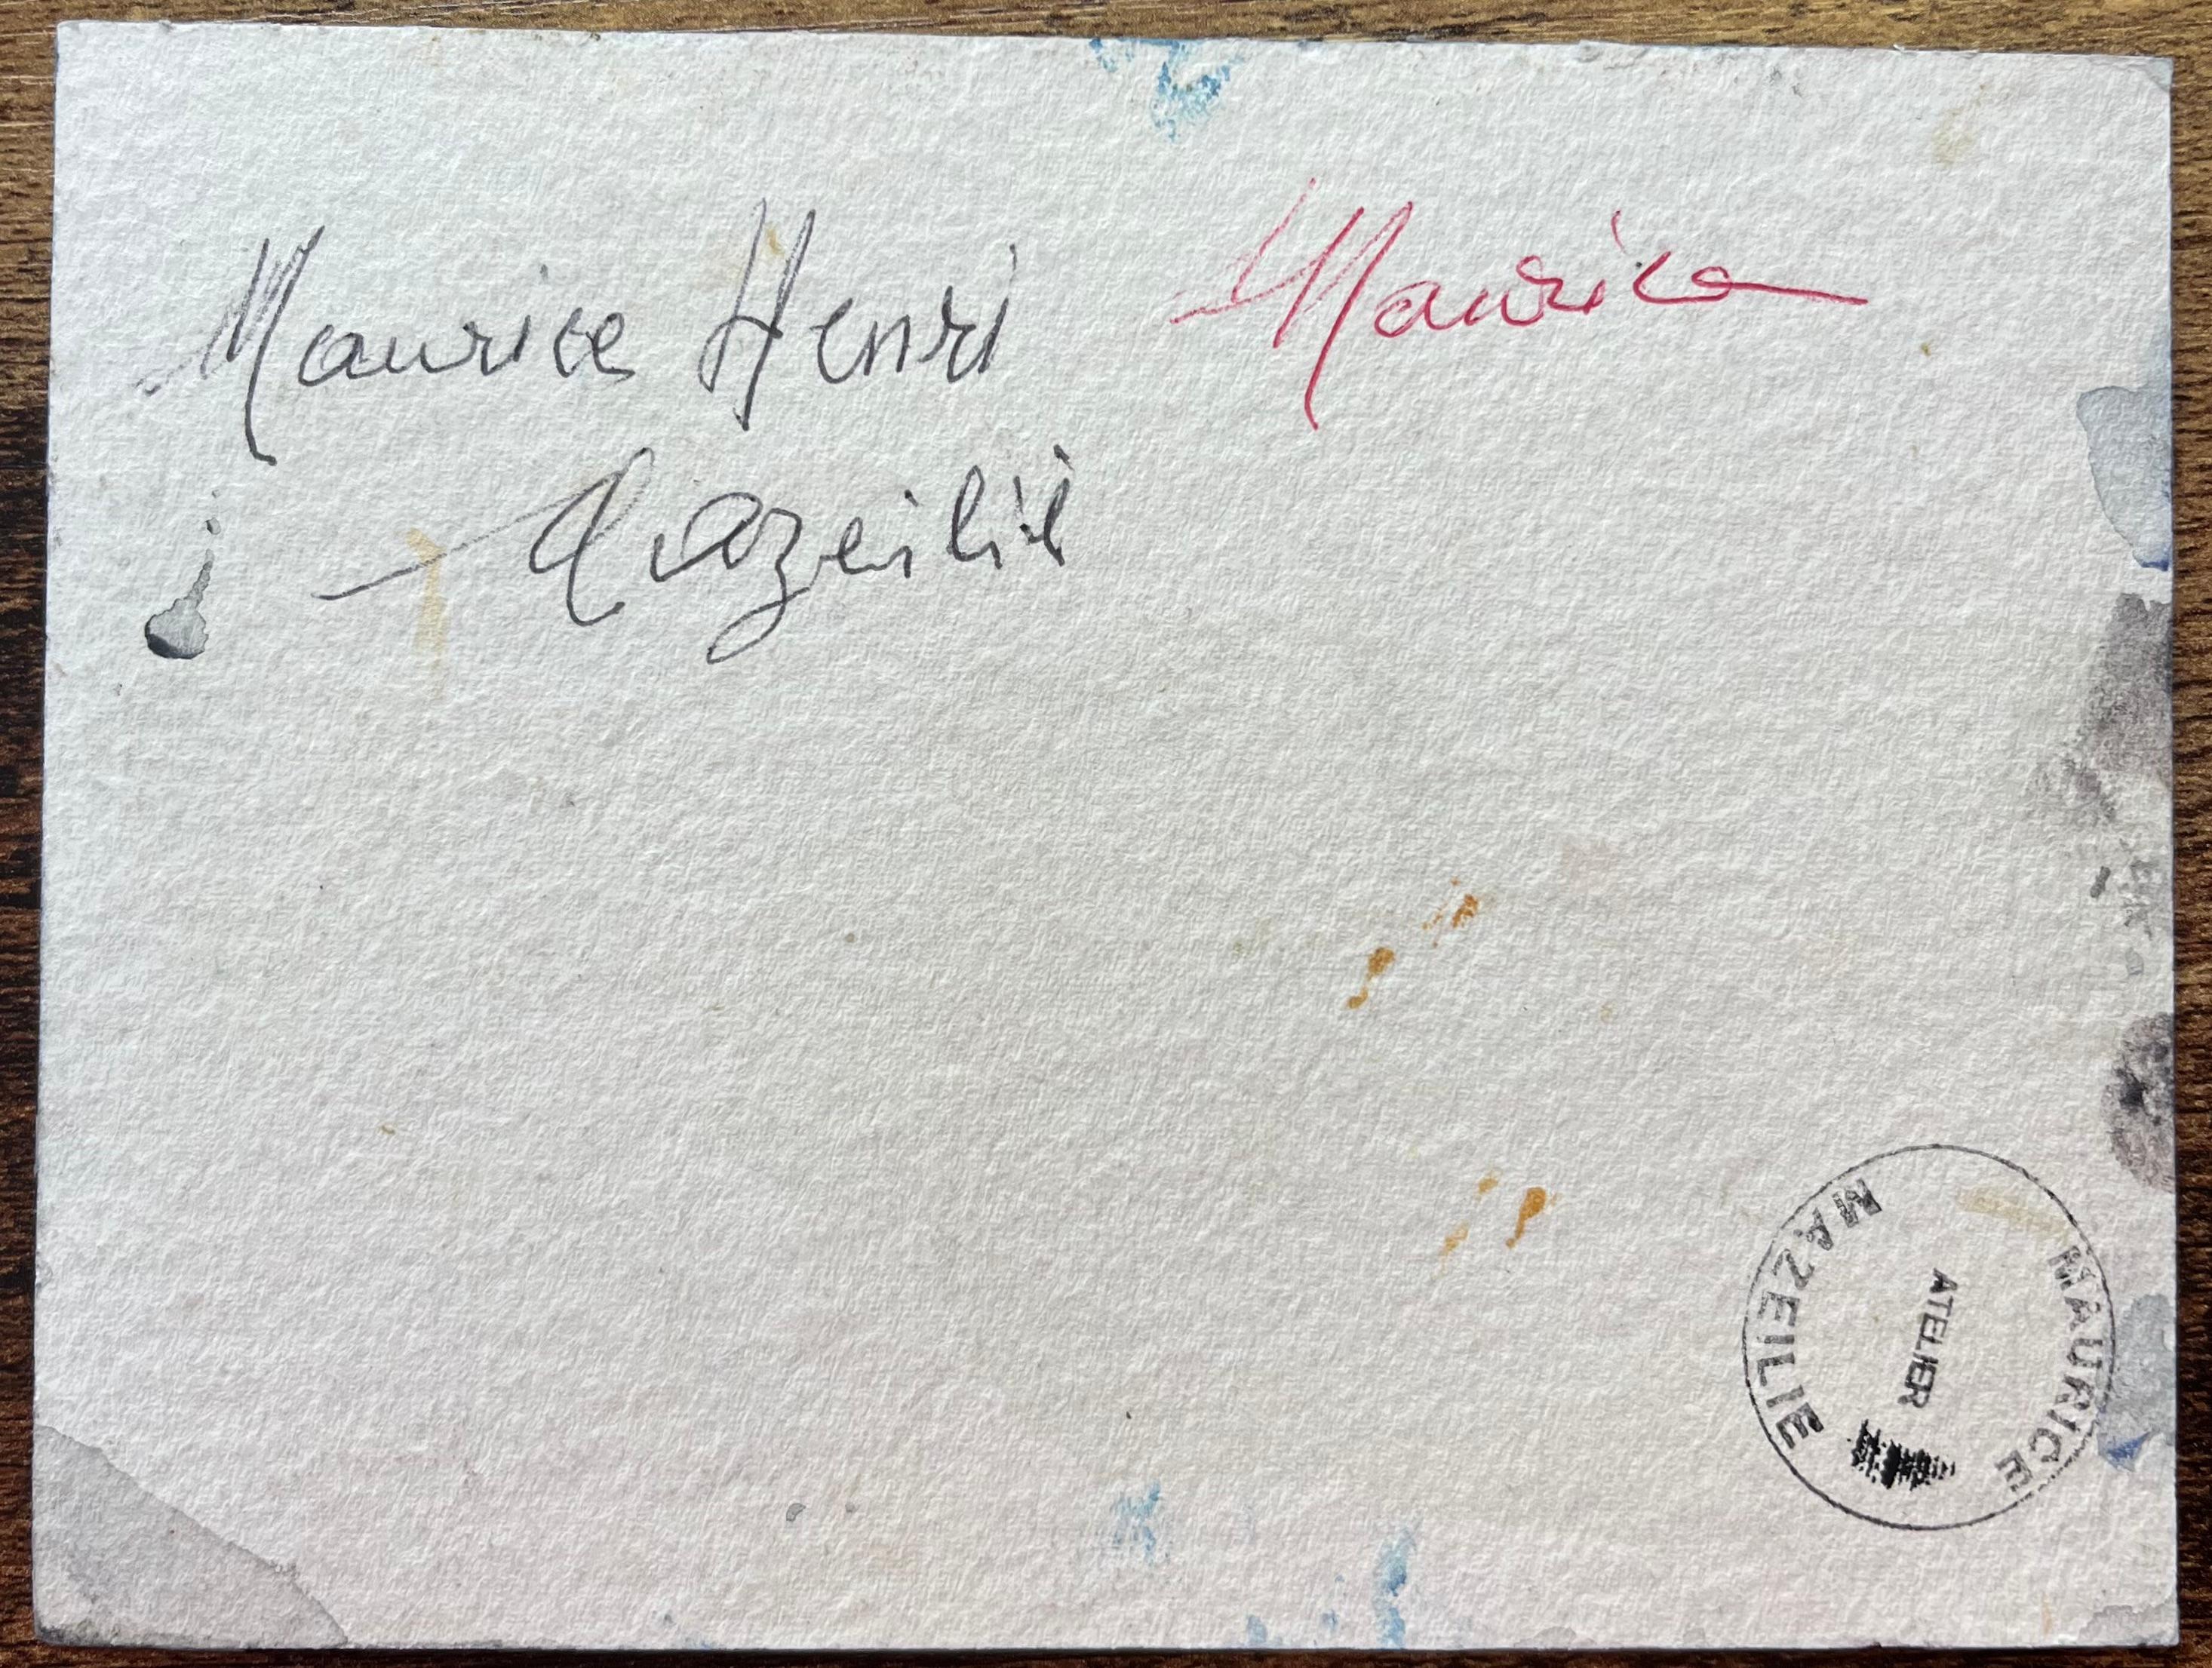 Maurice Henri
Maurice
Mazeilié
MAURICE
ATELIER
MAZEILIE